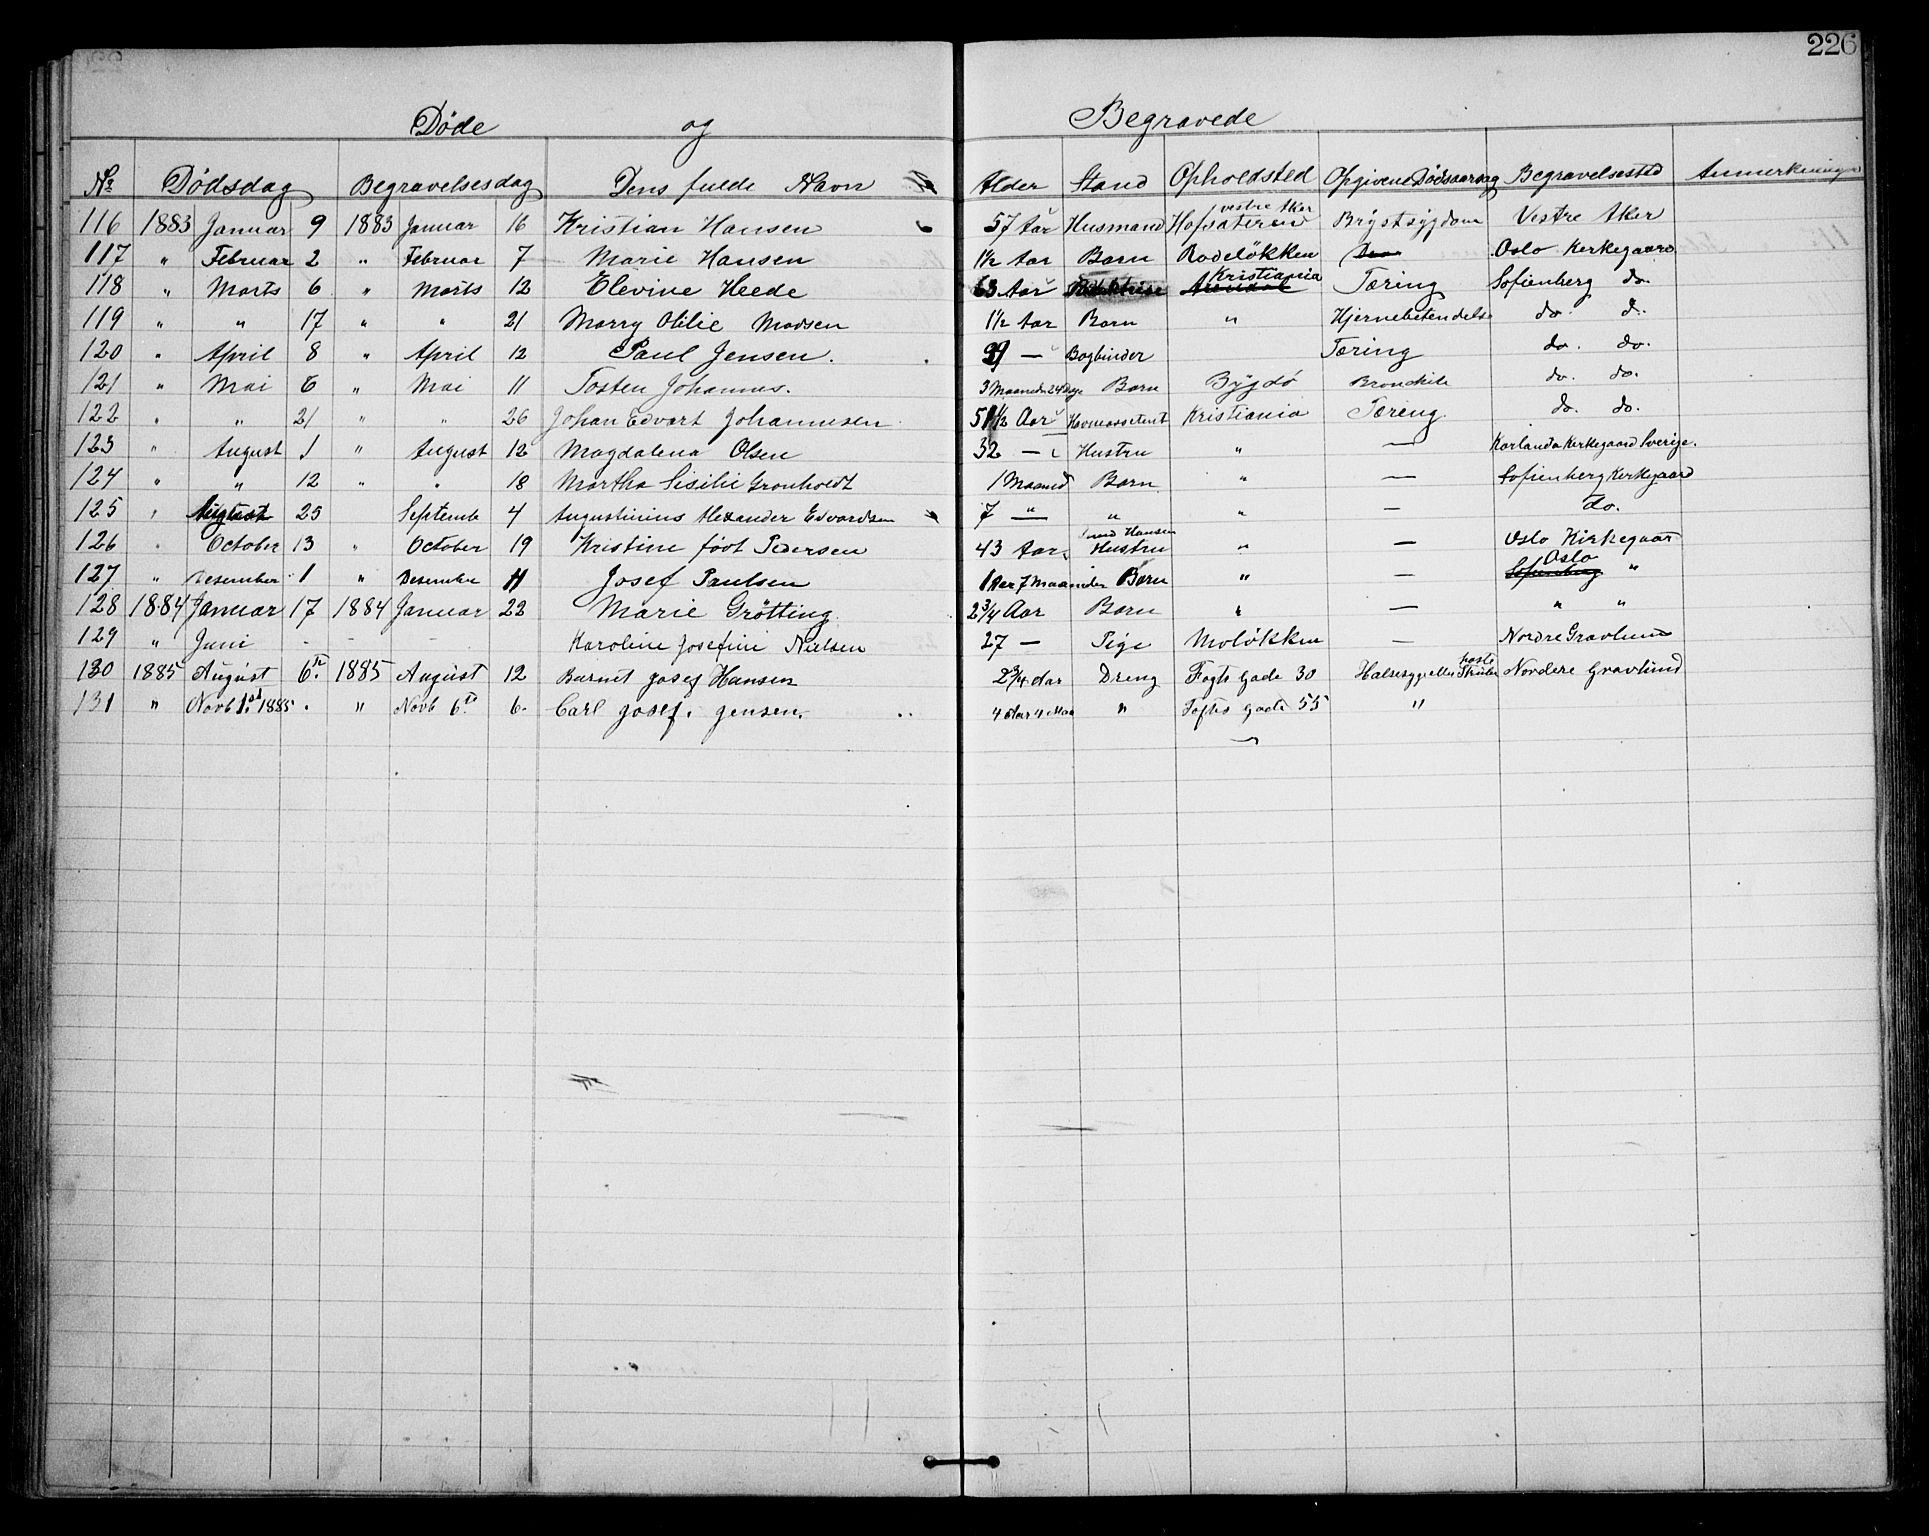 226
Døde og Begravede
No Dødsdag Begravelsesdag Dens fulde Navn Alder Stand Opholdsted Opgivene Dødsaarsag Begravelsested Anmerkninger
116 1883 Januar 9 1883 Januar 16 Kristian Hansen 57 Aar Husmand Hofsateren vestre Aker Brystsygdom Vestre Aker
117 " Februar 2 " Februar 7 Marie Hansen 1½ Aar Barn Rodeløkken Oslo Kerkegaard
118 " Marts 6 " Marts 12 Elevine Heede 63 Aar Kristiania Tæring Sofienberg do.
119 " " 17 " " 21 Marry Otilie Madsen 1½ Aar Barn " Hjernebetendelse do. d.
120 " April 8 " April 12 Paul Jensen. 39 — Bogbinder Tæring do. do.
121 " Mai 6 " Mai 11 Tosten Johannes. 3 Maaneder 24 Dage Barn Bygdö Bronchit do. do.
122 " " 21 " " 26 Johan Edvart Johannesen 51½ Aar Havneassetent Kristiania Tæring. do. do.
123 " August 1 " August 12 Magdalena Olsen 32 — Hustru " — Karlanda Kerkegaard Sverige.
124 " " 12 " " 18 Martha Sisilie Gronholdt 1 Maaned Barn " — Sofienberg Kerkegaard
125 " August 25 Septemb 4 Augustinius Alexander Edvardsen 7 " " " — do.
126 " October 13 " October 19 Kristine født Pedersen 43 Aar. Hustru " — Oslo Kirkegaar
127 " Desember 1 " Desember 11 Josef Paulsen 1 Aar 7 Maaneder Barn " — Sofienberg Oslo "
128 1884 Januar 17 1884 Januar 22 Marie Grötting 2¾ Aar Barn " — " "
129 " Juni - - - Karoline Josefine Nielsen 27 — Pige Moløkken — Nordre Gravlund
130 1885 August 6. 1885 August 12 Barnet Josef Hansen 2¾ Aar Dreng Fogts Gade 30 Halssyge eller Strube hoste Nordere Gravlund
131 " Novb 1. 1885. " Novb 6. 6. Carl Josef. Jensen. 4 Aar 4 Maa " Toftes Gade 55 "